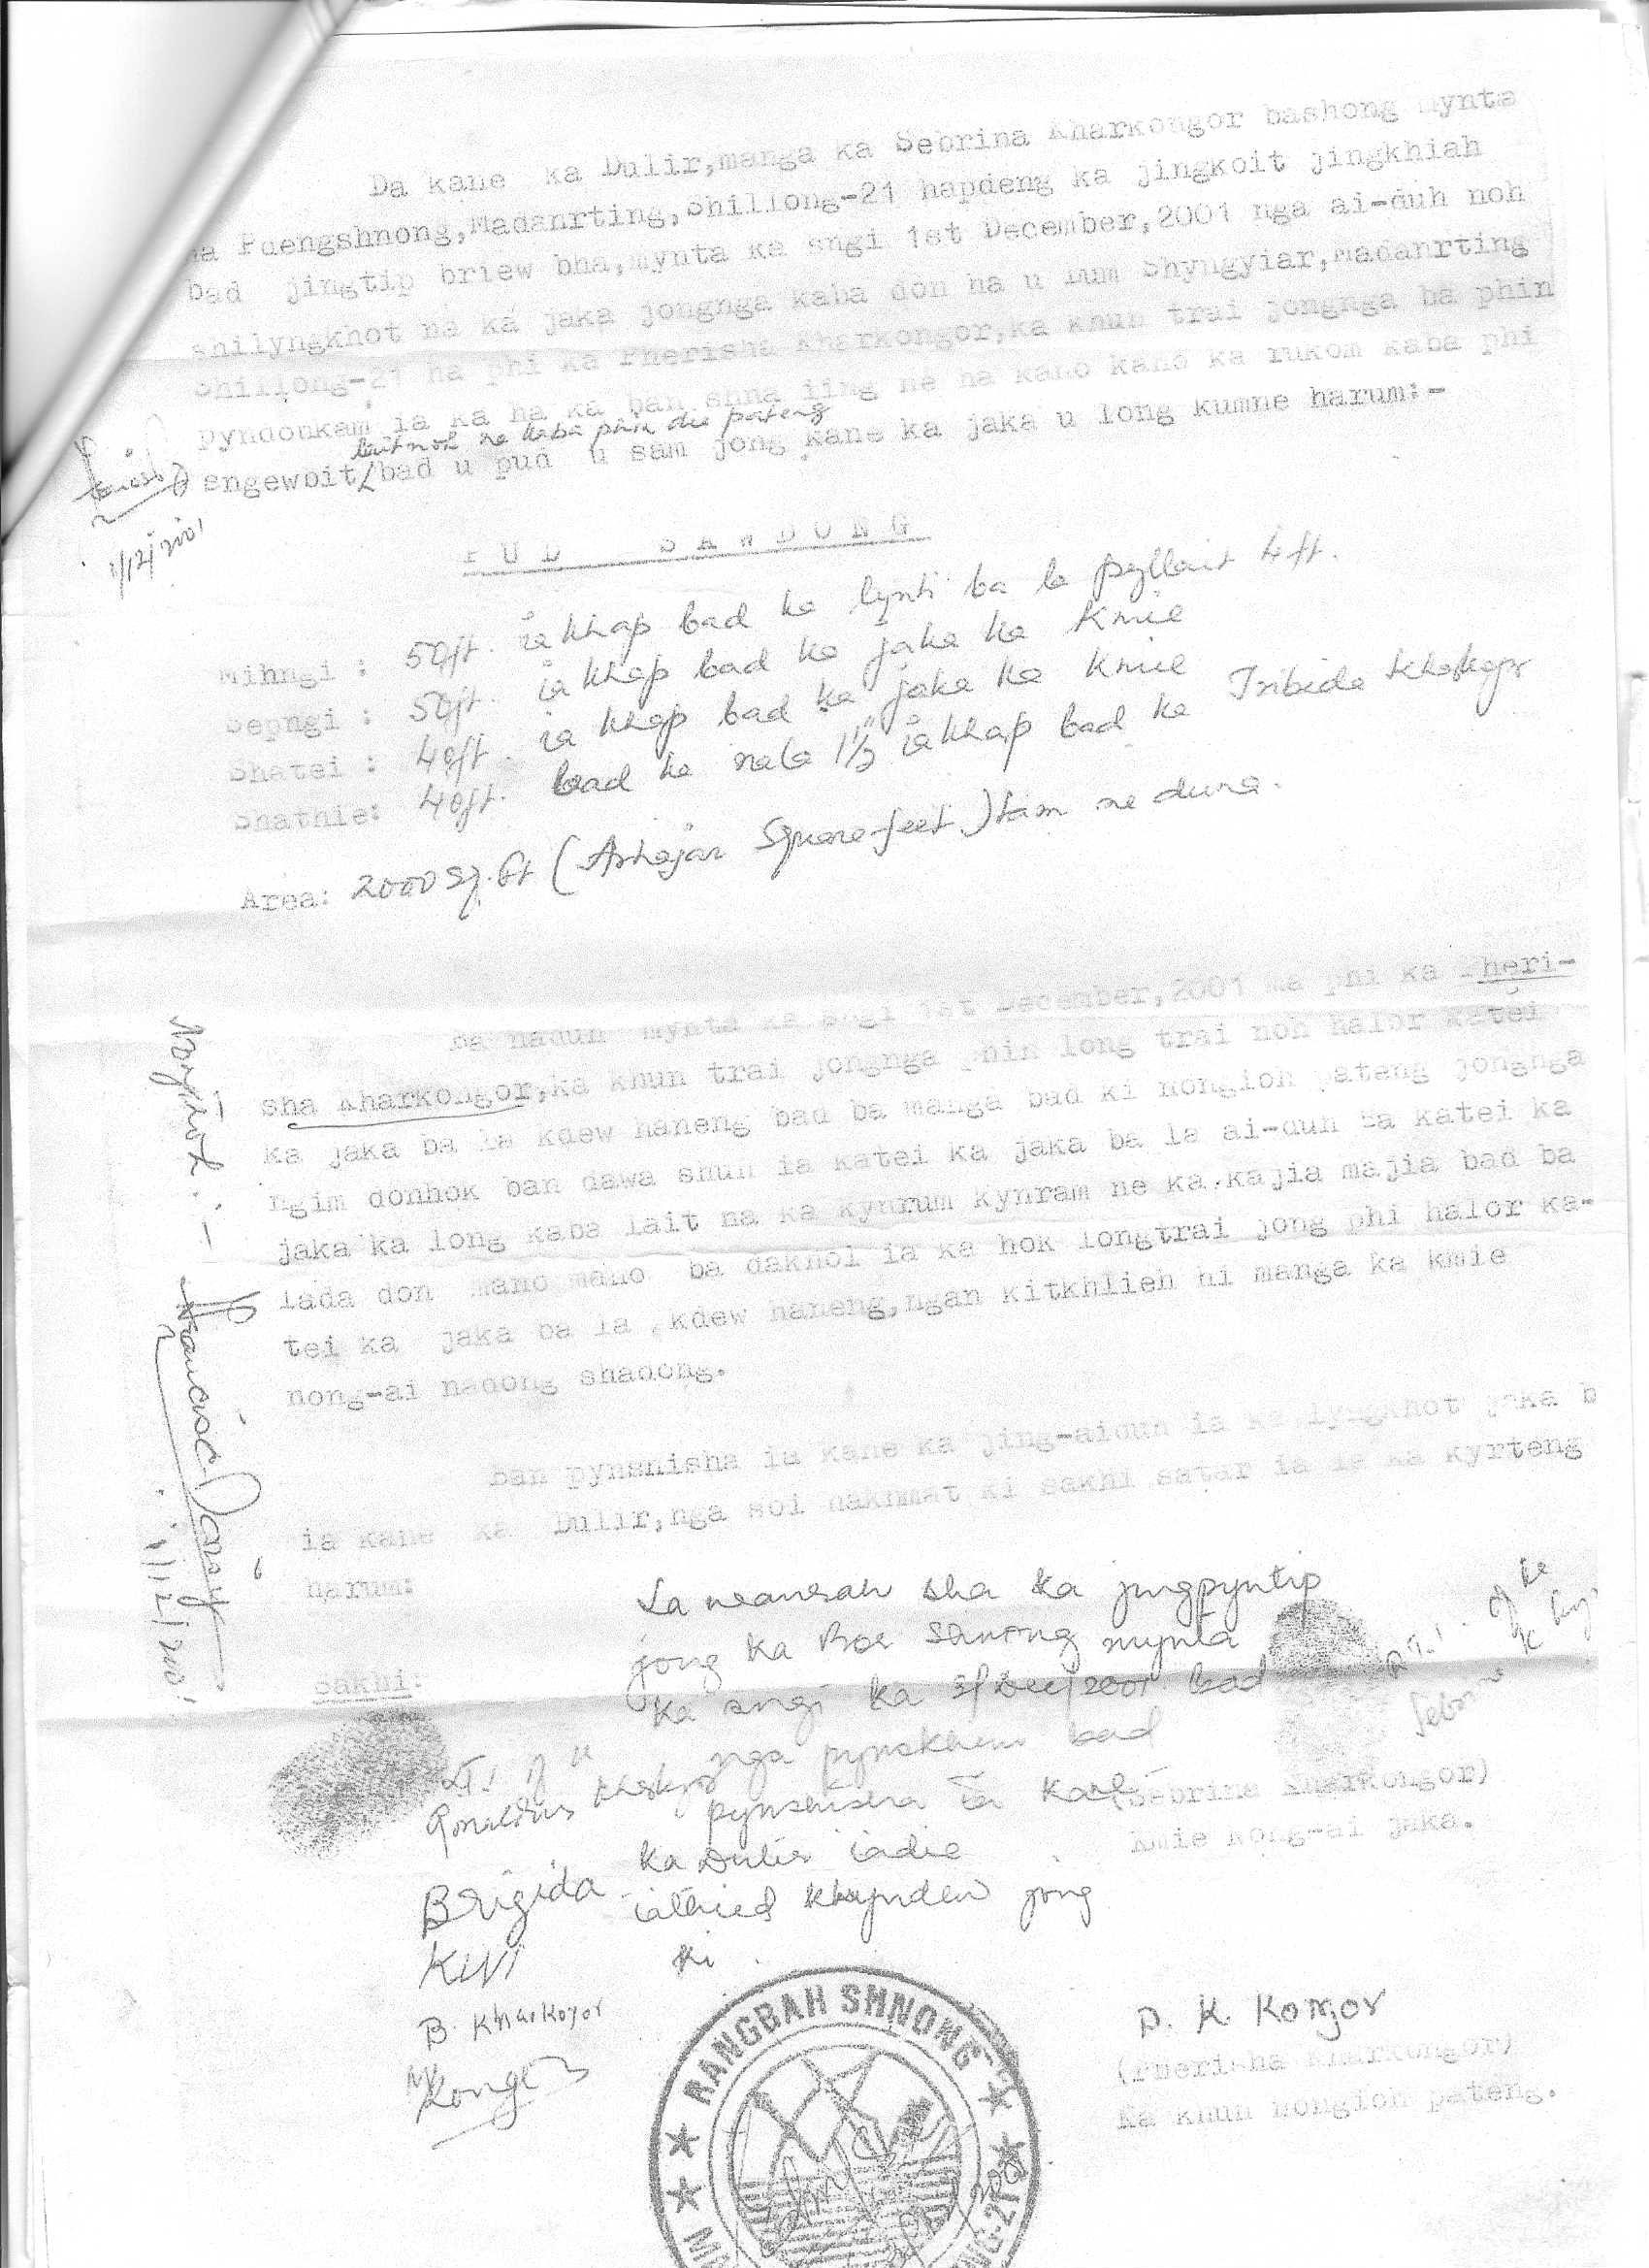 Da kane ka Dulir,manga ka Sebrina Kharkongor bashong mynta
ha Pdengshnong,Madanrting,Shillong-21 hapdeng ka jingkoit jingkhiah
bad jingtip briew bha,mynta ka sngi 1st December,2001 nga ai-duh noh
shilyngkhot na ka jaka jongnga kaba don ha u Lum Shyngyiar,Madanrting
Shillong-21 ha phi ka Pherisha Kharkongor,ka khun trai jongnga ba phin
pyndonkam ia ka ha ka ban shna iing ne ha kano kano ka rukom kaba phi
lait noh ne kaba phin die pateng
engewbit, bad u pud u sam jong kane ka jaka u long kumne harum:-
1/12/2001
PUD SAWDONG
Mihngi : 50ft. iakhap bad ka lynti ba la pyllait 4ft.
Sepngi : 50ft. iakhap bad ka jaka ka Kmie
Shatei : 40ft. iakhap bad ka jaka ka Kmie
Shathie: 40ft. bad ka nala 1½ iakhap bad ka Tribida Kharkongor
Area: 2000 Sq.ft (Arhajar Square-feet) tam ne duna.
Ba naduh mynta ka sngi 1st December,2001 ma phi ka Pheri-
sha Kharkongor,ka khun trai jongnga phin long trai noh halor katei
ka jaka ba la kdew haneng bad ba manga bad ki nongioh pateng jongnga
ngim donhok ban dawa shuh ia katei ka jaka ba la ai-duh ba katei ka
jaka ka long kaba lait na ka kynrum kynram ne ka kajia majia bad ba
lada don mano mano ba daknol ia ka hok longtrai jong phi halor ka-
tei ka jaka ba la kdew haneng,ngan kitkhlieh hi manga ka kmie
nong-ai nadong shadong.
Ban pynshisha ia kane ka jing-aiduh ia ka lyngkhot jaka b
ia kane ka Dulir,nga soi nakhmat ki sakhi satar ia la ka kyrteng
harum:
Nongthoh :-
Francisca
1/12/2001
La wanrah sha ka jingpyntip
jong ka Bor Shnong mynta
ka sngi ka 3/Dec/2001 bad
nga pynskhem bad
pynshisha ia kane
ka Dulir iadie
iathied khyndew jong
ki.
Sakhi:
LTI of u
Ronaldius Kharkongor
Brigida
KWI
B. Kharkongor
(Sebrina Kharkongor)
Kmie Nong-ai jaka.
D. K. Kongor
(Pherisha Kharkongor)
Ka khun nongioh pateng.
RANGBAH SHNONG